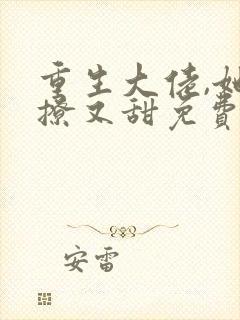 重生大佬,她
撩又甜免费
安雷